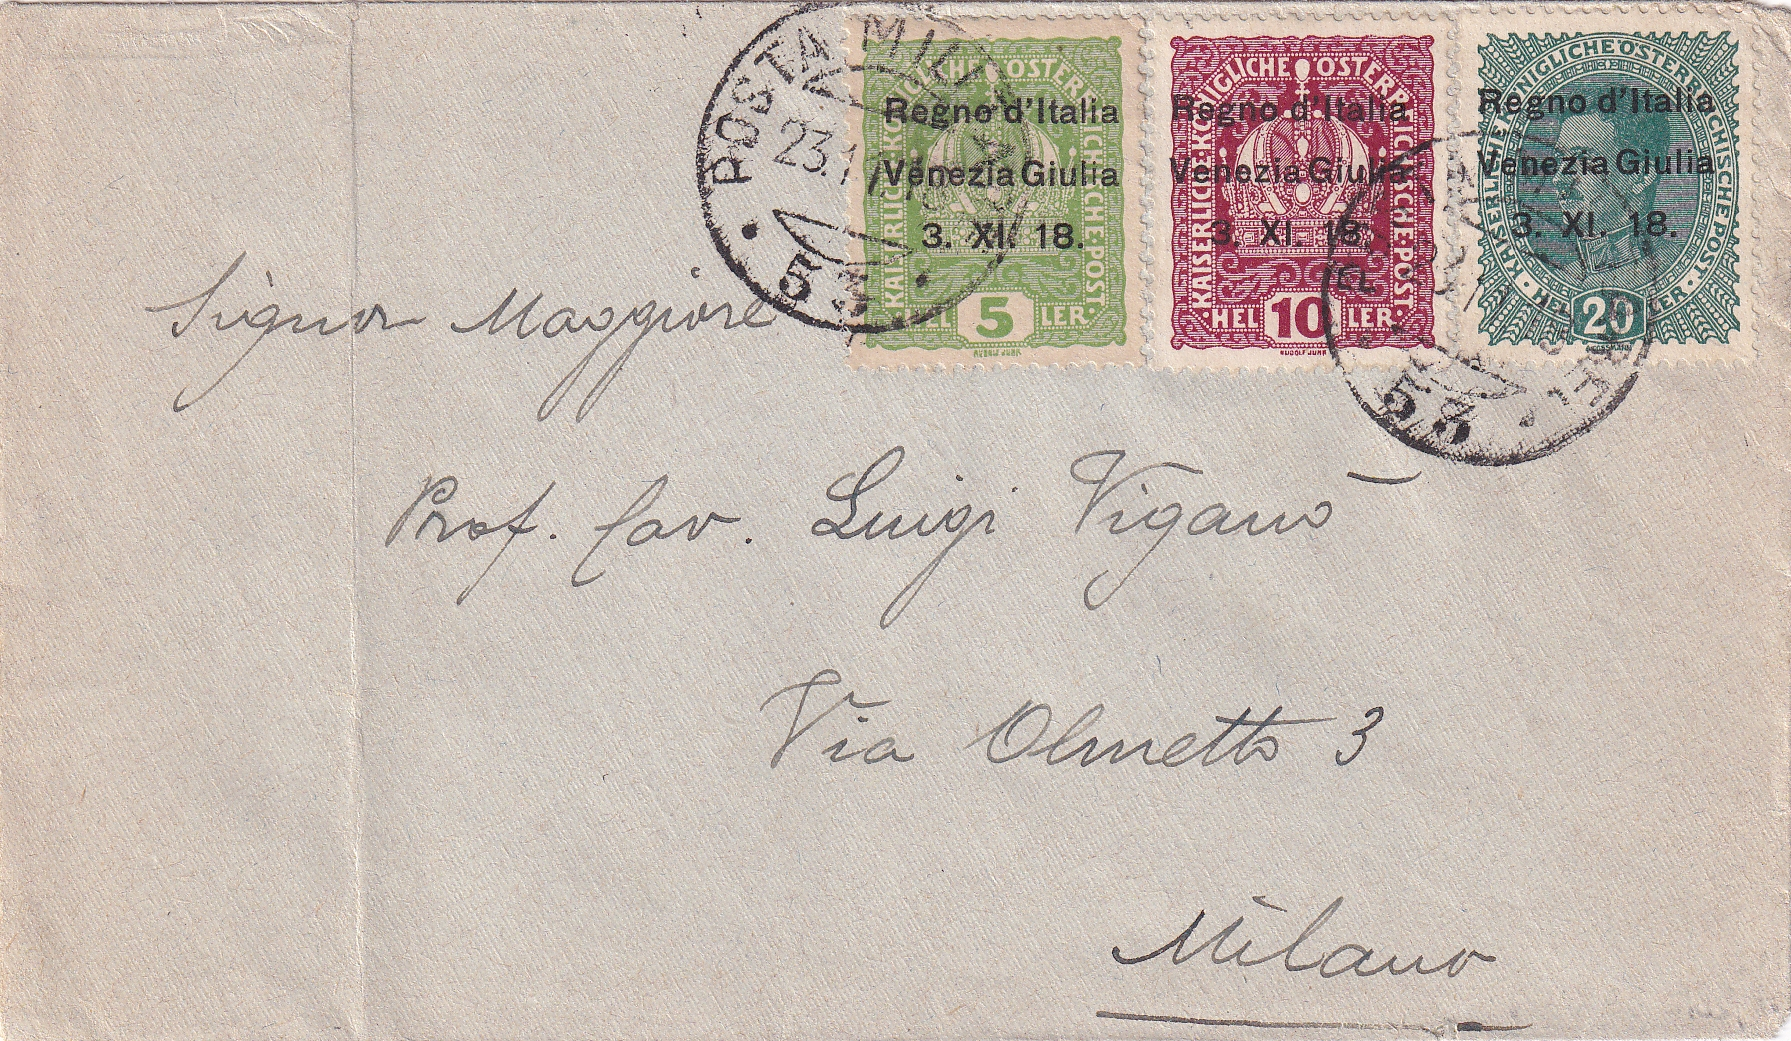 POSTA MILITARE
23.
53
KAISERLICHE·KÖNIGLICHE ÖSTERREICHISCHE·POST
Regno d'Italia
Venezia Giulia
3. XI. 18.
HEL 5 LER
RUDOLF JUNK
KAISERLICHE·KÖNIGLICHE ÖSTERREICHISCHE·POST
Regno d'Italia
Venezia Giulia
3. XI. 18.
HEL 10 LER
RUDOLF JUNK
KAISERLICHE KÖNIGLICHE ÖSTERREICHISCHE POST
Regno d'Italia
Venezia Giulia
3. XI. 18.
HEL 20 LER
53
Signor Maggiore
Prof. Cav. Luigi Viganò
Via Olmetto 3
Milano